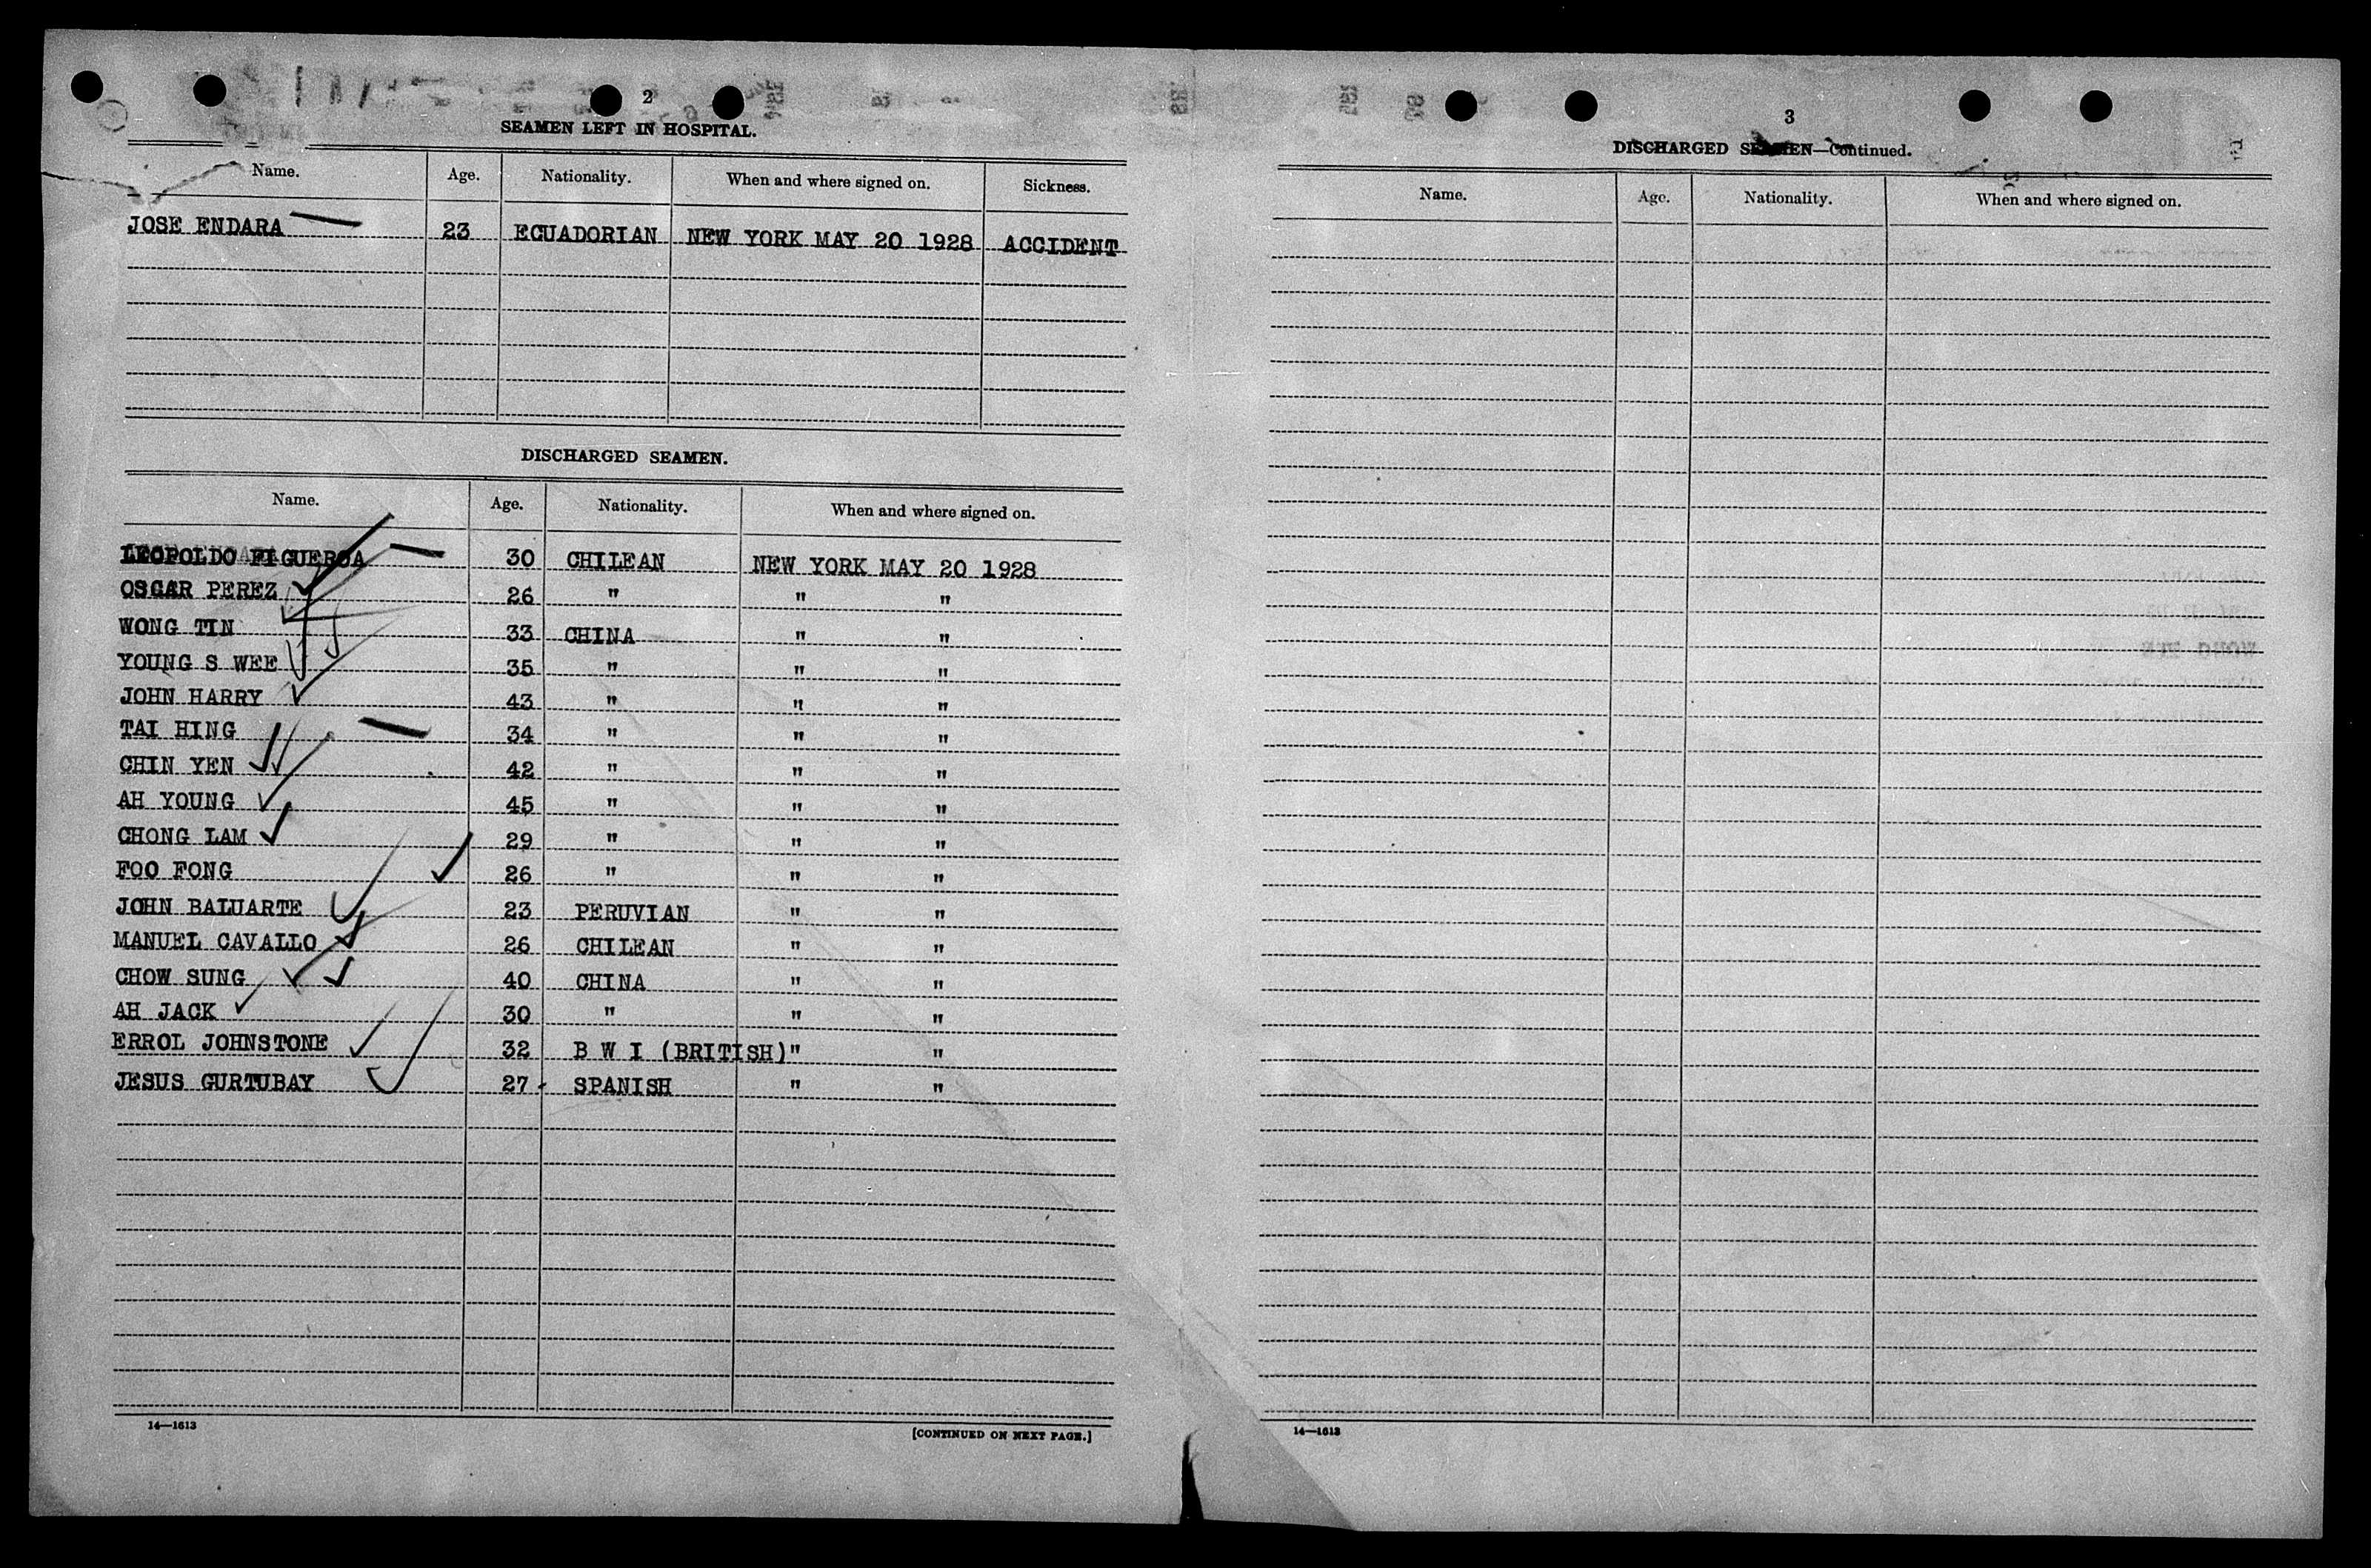 2
SEAMEN LEFT IN HOSPITAL.
Name. Age. Nationality. When and where signed on. Sickness.
JOSE ENDARA 23 ECUADORIAN NEW YORK MAY 20 1928 ACCIDENT
DISCHARGED SEAMEN.
Name. Age. Nationality. When and where signed on.
LEOPOLDO FIGUEROA 30 CHILEAN NEW YORK MAY 20 1928
OSCAR PEREZ 26 " " "
WONG TIN 33 CHINA " "
YOUNG S WEE 35 " " "
JOHN HARRY 43 " " "
TAI HING 34 " " "
CHIN YEN 42 " " "
AH YOUNG 45 " " "
CHONG LAM 29 " " "
FOO FONG 26 " " "
JOHN BALUARTE 23 PERUVIAN " "
MANUEL CAVALLO 26 CHILEAN " "
CHOW SUNG 40 CHINA " "
AH JACK 30 " " "
ERROL JOHNSTONE 32 B W I (BRITISH) " "
JESUS GURTUBAY 27 SPANISH " "
14—1613
[CONTINUED ON NEXT PAGE.]
3
DISCHARGED SEAMEN—Continued.
Name. Age. Nationality. When and where signed on.
14—1613